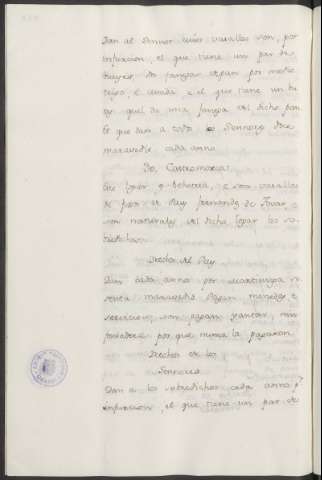 Dan al Sennor cuios vasallos son, por
infurcion, el que tiene un par de
bueyes, dos fanegas de pan por medio
trigo, e cevada, e el que tiene un bu
ey quel de una fanega del dicho pan
e que dan a cada Sennor doce
maravedis cada anno
Castromocia
Este logar es Behetria, e son vasallos
de Ruy Fernandez de Tovar, e
son naturales del dicho logar los so
bredichos.
Derechos del Rey
Dan cada anno por martiniega
maravedis Pagan monedas e
servicios, non pagan yantar, nin
fonsadera por que nunca la pagaron.
Derechos de los
Sennores
Dan a los sobredichos cada anno por
infurcion, el que tiene un par de